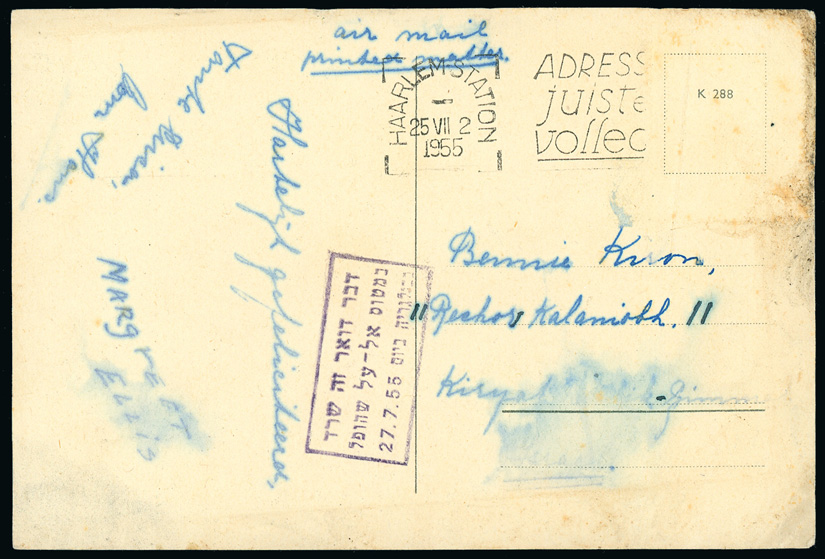 air mail
printed matter.
HAARLEM-STATION
25 VII 2
1955
ADRESS
juiste
volled
K 288
Tante
Oom
Hartelijk gefeliciteerd,
MARGREET
ELLIS
דבר דואר זה שרד
במטוס אל-על שהופל
בבולגריה ביום 27.7.55
Bennie Kiron,
11 Rechov Kalaniobh. 11
Kiryat